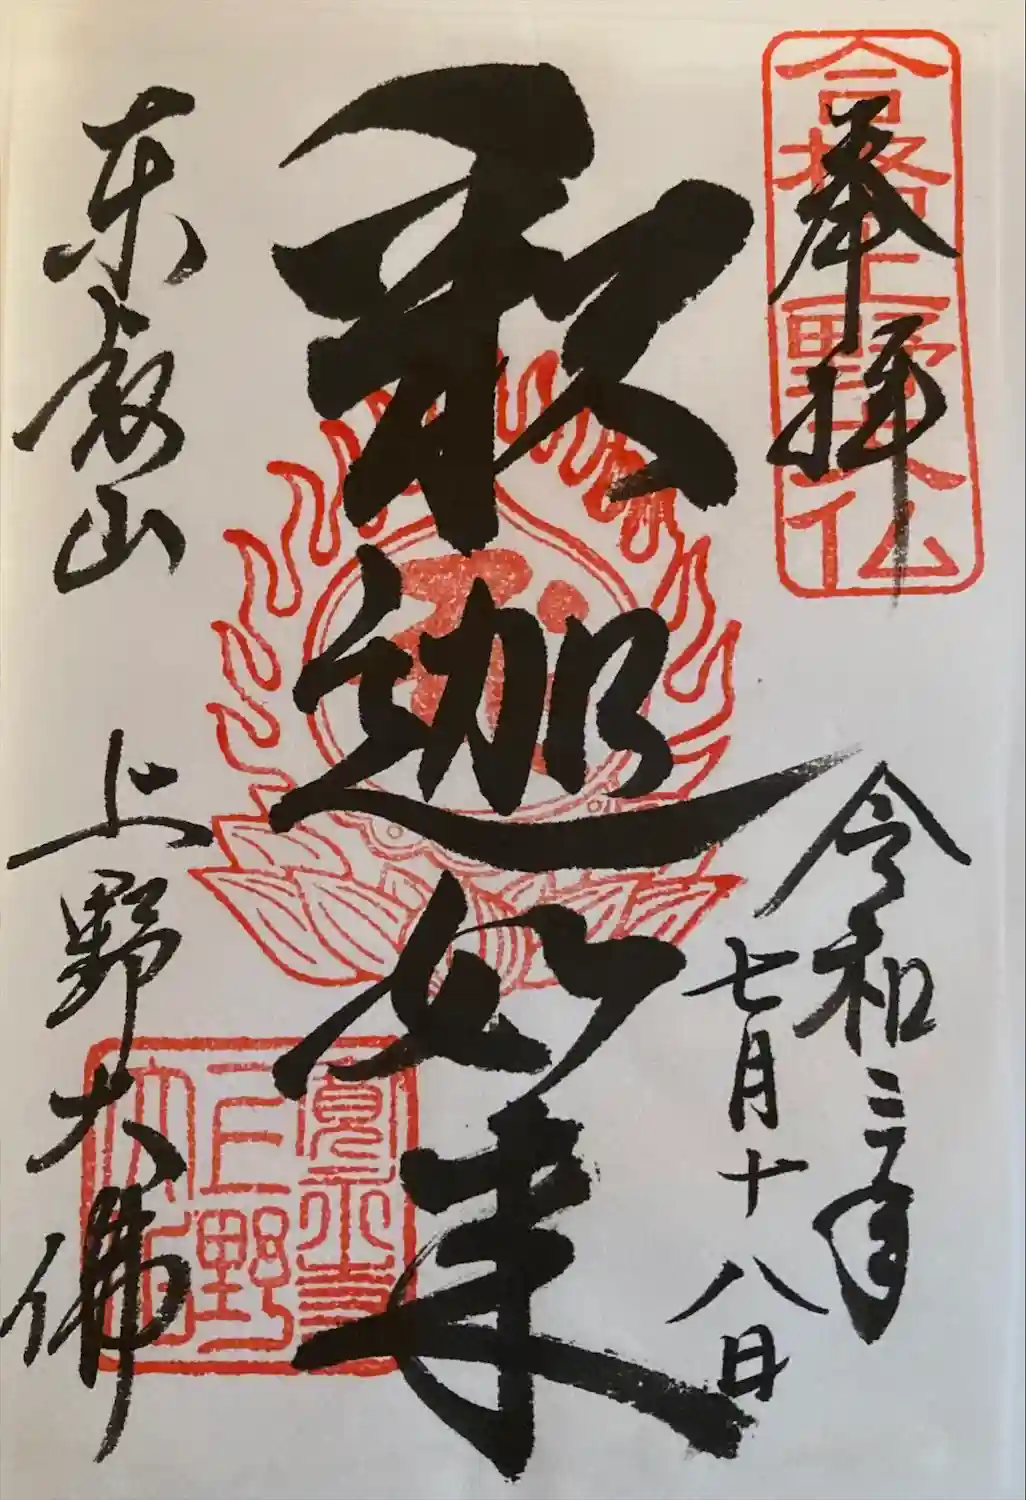 奉拝
合格上野大仏
令和三年
七月十八日
釈迦如来
東叡山
上野大佛
寛永寺
上野
大佛